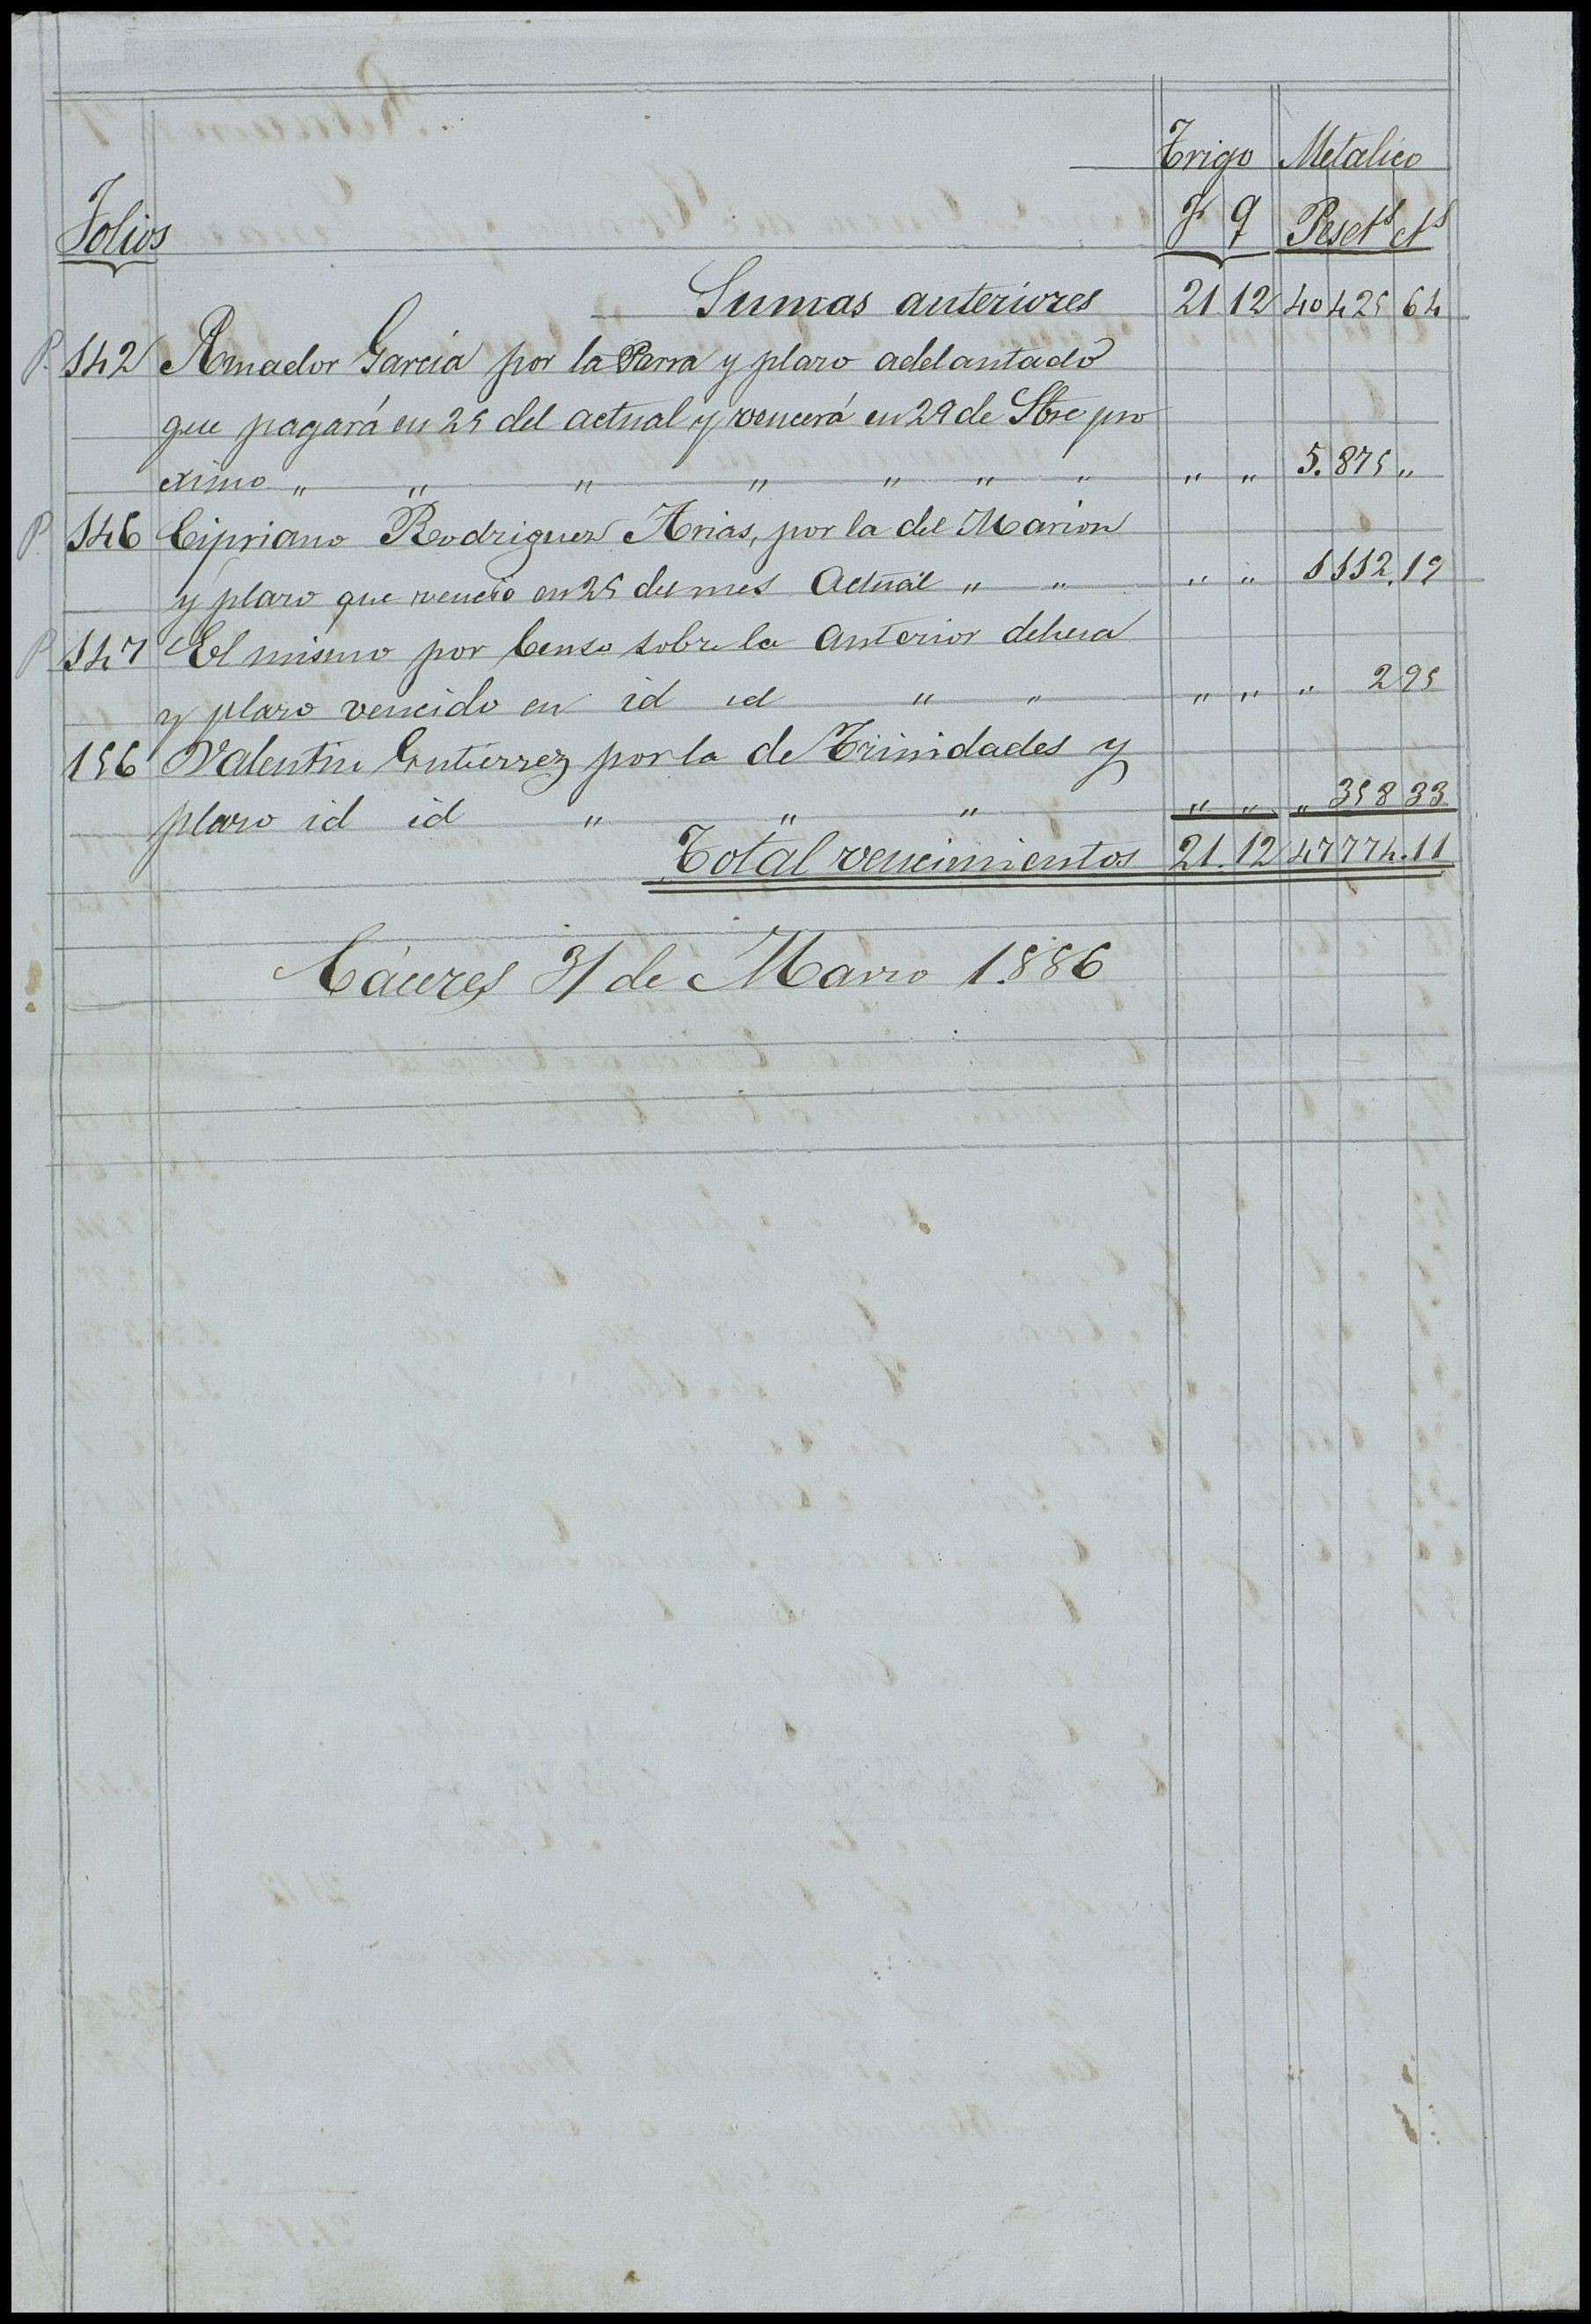 Trigo Metalico
Folios f q Peset.s ct.s
Sumas anteriores 21 12 40425 64
P. 142 Amador Garcia por la Parra y plazo adelantado
que pagará en 25 del actual y vencerá en 29 de Sbre pro
ximo " " " " " " " " " 5.875 "
P. 146 Cipriano Rodriguez Arias, por la del Marion
y plazo que vencio en 25 del mes Actual " " " " 1112.19
P 147 El mismo por Censo sobre la Anterior dehesa
y plazo vencido en id id " " " " " 2 95
156 Valentin Gutierrez por la de Trinidades y
plazo id id " " " " " " 358 33
Total vencimientos 21. 12 47774.11
Cáceres 31 de Marzo 1.886